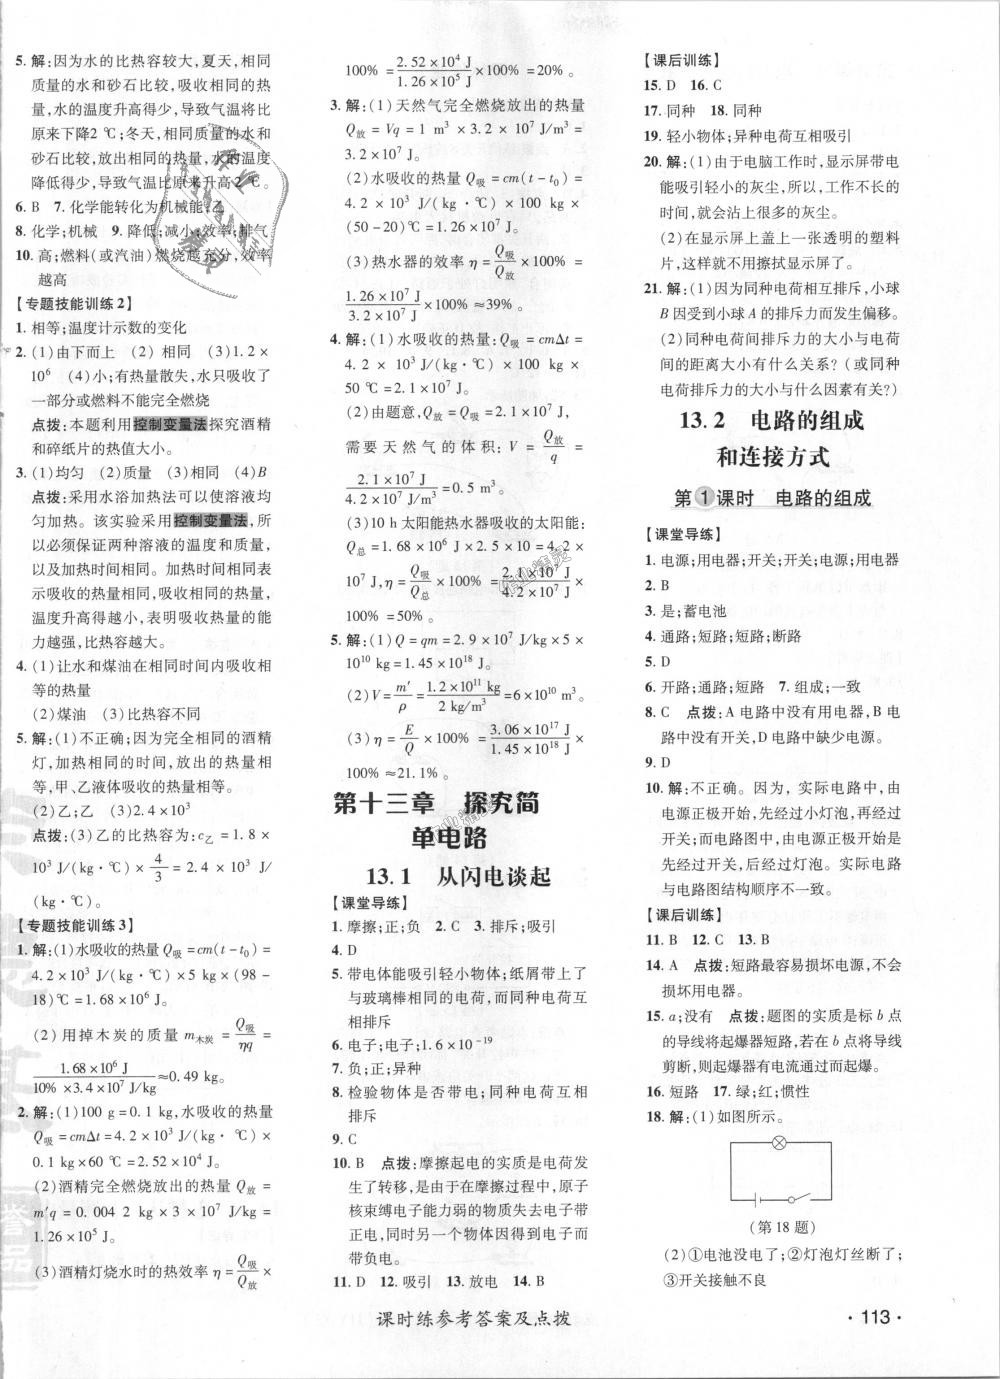 5. 解:因为水的比热容较大,夏天,相同
质量的水和砂石比较,吸收相同的热
量,水的温度升高得少,导致气温将比
原来下降2 ℃;冬天,相同质量的水和
砂石比较,放出相同的热量,水的温度
降低得少,导致气温比原来升高2 ℃。
6. B  7. 化学能转化为机械能;乙
8. 化学;机械  9. 降低;减小;效率;排气
10. 高;燃料(或汽油)燃烧越充分,效率
越高
【专题技能训练2】
1. 相等;温度计示数的变化
2. (1)由下而上  (2) 相同  (3)1. 2 ×
10⁶  (4)小;有热量散失,水只吸收了
一部分或燃料不能完全燃烧
点拨:本题利用控制变量法探究酒精
和碎纸片的热值大小。
3. (1)均匀  (2)质量  (3)相同  (4)B
点拨:采用水浴加热法可以使溶液均
匀加热。该实验采用控制变量法,所
以必须保证两种溶液的温度和质量,
以及加热时间相同。加热时间相同表
示吸收的热量相同,吸收相同的热量,
温度升高得越小,表明吸收热量的能
力越强,比热容越大。
4. (1)让水和煤油在相同时间内吸收相
等的热量
(2)煤油  (3)比热容不同
5. 解:(1)不正确;因为完全相同的酒精
灯,加热相同的时间,放出热量相
等,甲、乙液体吸收的热量相等。
(2)乙;乙  (3)2. 4 × 10³
点拨:(3)乙的比热容为:c乙 = 2. 1 ×
10³ J/(kg·℃) × 4/3 = 2. 4 × 10³ J/
(kg·℃)。
【专题技能训练3】
1. 解:(1)水吸收的热量 Q吸 = cm(t - t₀) =
4. 2 × 10³ J/(kg·℃) × 5 kg × (98 -
18)℃ = 1. 68 × 10⁶ J。
(2) 用掉木炭的质量 m木炭 = Q吸/ηq =
1. 68 × 10⁶ J/(10% × 3. 4 × 10⁷ J/kg) ≈ 0. 49 kg。
2. 解:(1)100 g = 0. 1 kg,水吸收的热量
Q吸 = cmΔt = 4. 2 × 10³ J/(kg·℃) ×
0. 1 kg × 60 ℃ = 2. 52 × 10⁴ J。
(2)酒精完全燃烧放出的热量 Q放 =
m′q = 0. 004 2 kg × 3 × 10⁷ J/kg =
1. 26 × 10⁵ J。
(3)酒精灯烧水时的热效率 η = Q吸/Q放 ×
100% = 2. 52 × 10⁴ J/1. 26 × 10⁵ J × 100% = 20%。
3. 解:(1)天然气完全燃烧放出的热量
Q放 = Vq = 1 m³ × 3. 2 × 10⁷ J/m³ =
3. 2 × 10⁷ J。
(2)水吸收的热量 Q吸 = cm(t - t₀) =
4. 2 × 10³ J/(kg·℃) × 100 kg ×
(50 - 20)℃ = 1. 26 × 10⁷ J。
(3)热水器的效率 η = Q吸/Q放 × 100% =
1. 26 × 10⁷ J/3. 2 × 10⁷ J × 100% ≈ 39%。
4. 解:(1)水吸收的热量:Q吸 = cmΔt =
4. 2 × 10³ J/(kg·℃) × 100 kg ×
50 ℃ = 2. 1 × 10⁷ J。
(2)由题意,Q放 = Q吸 = 2. 1 × 10⁷ J,
需要天然气的体积:V = Q放/q =
2. 1 × 10⁷ J/4. 2 × 10⁷ J/m³ = 0. 5 m³。
(3)10 h 太阳能热水器吸收的太阳能:
Q总 = 1. 68 × 10⁶ J × 2. 5 × 10 = 4. 2 ×
10⁷ J,η = Q吸/Q总 × 100% = 2. 1 × 10⁷ J/4. 2 × 10⁷ J ×
100% = 50%。
5. 解:(1)Q = qm = 2. 9 × 10⁷ J/kg × 5 ×
10¹⁰ kg = 1. 45 × 10¹⁸ J。
(2)V = m′/ρ = 1. 2 × 10¹¹ kg/2 kg/m³ = 6 × 10¹⁰ m³。
(3) η = E/Q × 100% = 3. 06 × 10¹⁷ J/1. 45 × 10¹⁸ J ×
100% ≈ 21. 1%。
第十三章 探究简
单电路
13. 1 从闪电谈起
【课堂导练】
1. 摩擦;正;负  2. C  3. 排斥;吸引
4. D
5. 带电体能吸引轻小物体;纸屑带上了
与玻璃棒相同的电荷,而同种电荷互
相排斥
6. 电子;电子;1. 6 × 10⁻¹⁹
7. 负;正;异种
8. 检验物体是否带电;同种电荷互相
排斥
9. C
10. B  点拨:摩擦起电的实质是电荷发
生了转移,是由于在摩擦过程中,原子
核束缚电子能力弱的物质失去电子带
正电,同时另一个物体因得到电子而
带负电。
11. D  12. 吸引  13. 放电  14. B
【课后训练】
15. D  16. C
17. 同种  18. 同种
19. 轻小物体;异种电荷互相吸引
20. 解:(1)由于电脑工作时,显示屏带电
能吸引轻小的灰尘,所以,工作不长的
时间,就会沾上很多的灰尘。
(2)在显示屏上盖上一张透明的塑料
片,这样就不用擦拭显示屏了。
21. 解:(1)因为同种电荷相互排斥,小球
B 因受到小球 A 的排斥力而发生偏移。
(2)同种电荷间排斥力的大小与电荷
间的距离大小有什么关系?(或同种
电荷排斥力的大小与什么因素有关?)
13. 2 电路的组成
和连接方式
第1课时 电路的组成
【课堂导练】
1. 电源;用电器;开关;开关;电源;用电器
2. B
3. 是;蓄电池
4. 通路;短路;短路;断路
5. D
6. 开路;通路;短路  7. 组成;一致
8. C  点拨:A 电路中没有用电器,B 电
路中没有开关,D 电路中缺少电源。
9. D
10. 解:不正确。因为,实际电路中,由
电源正极开始,先经过小灯泡,再经过
开关;而电路图中,由电源正极开始,
先经过开关,后经过灯泡。实际电路
与电路图结构顺序不一致。
【课后训练】
11. B  12. C  13. B
14. A  点拨:短路最容易损坏电源,不会
损坏用电器。
15. a;没有  点拨:题图的实质是标 b 点
的导线将起爆器短路,若在 b 点将导线
剪断,则起爆器有电流通过而起爆。
16. 短路  17. 绿;红;惯性
18. 解:(1)如图所示。
(第 18 题)
(2)①电池没电了;②灯泡灯丝断了;
③开关接触不良
课时练参考答案及点拨
· 113 ·